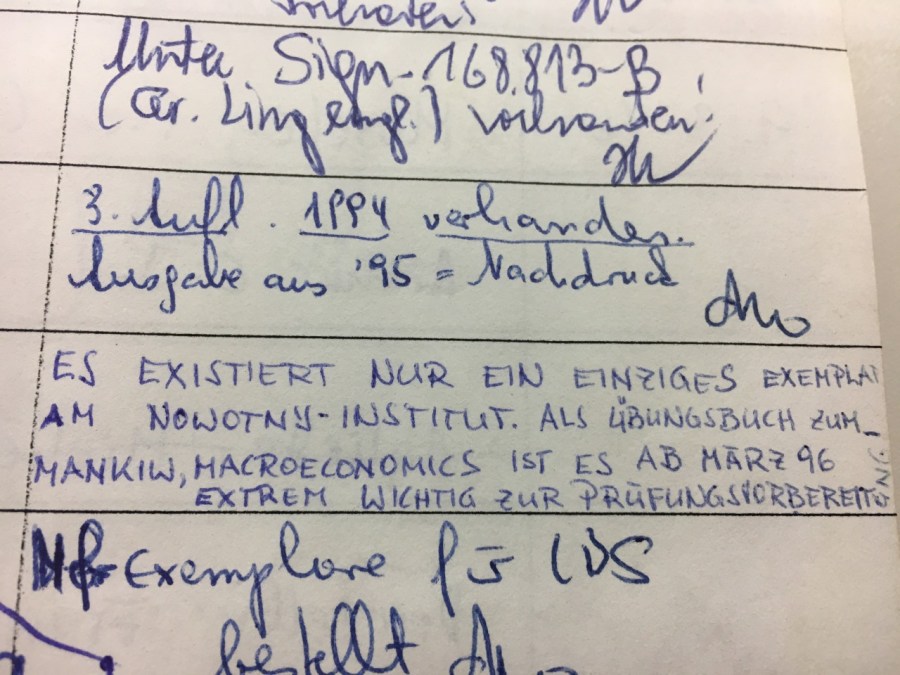 vorhanden!
Unter Sign. 168.813-B
(Gr. Ling engl.) vorhanden!
3. Aufl. 1994 vorhanden.
Ausgabe aus '95 = Nachdruck
ES EXISTIERT NUR EIN EINZIGES EXEMPLAR
AM NOWOTNY-INSTITUT. ALS ÜBUNGSBUCH ZUM
MANKIW, MACROECONOMICS IST ES AB MÄRZ 96
EXTREM WICHTIG ZUR PRÜFUNGSVORBEREITUNG
Exemplare für LBS
bestellt